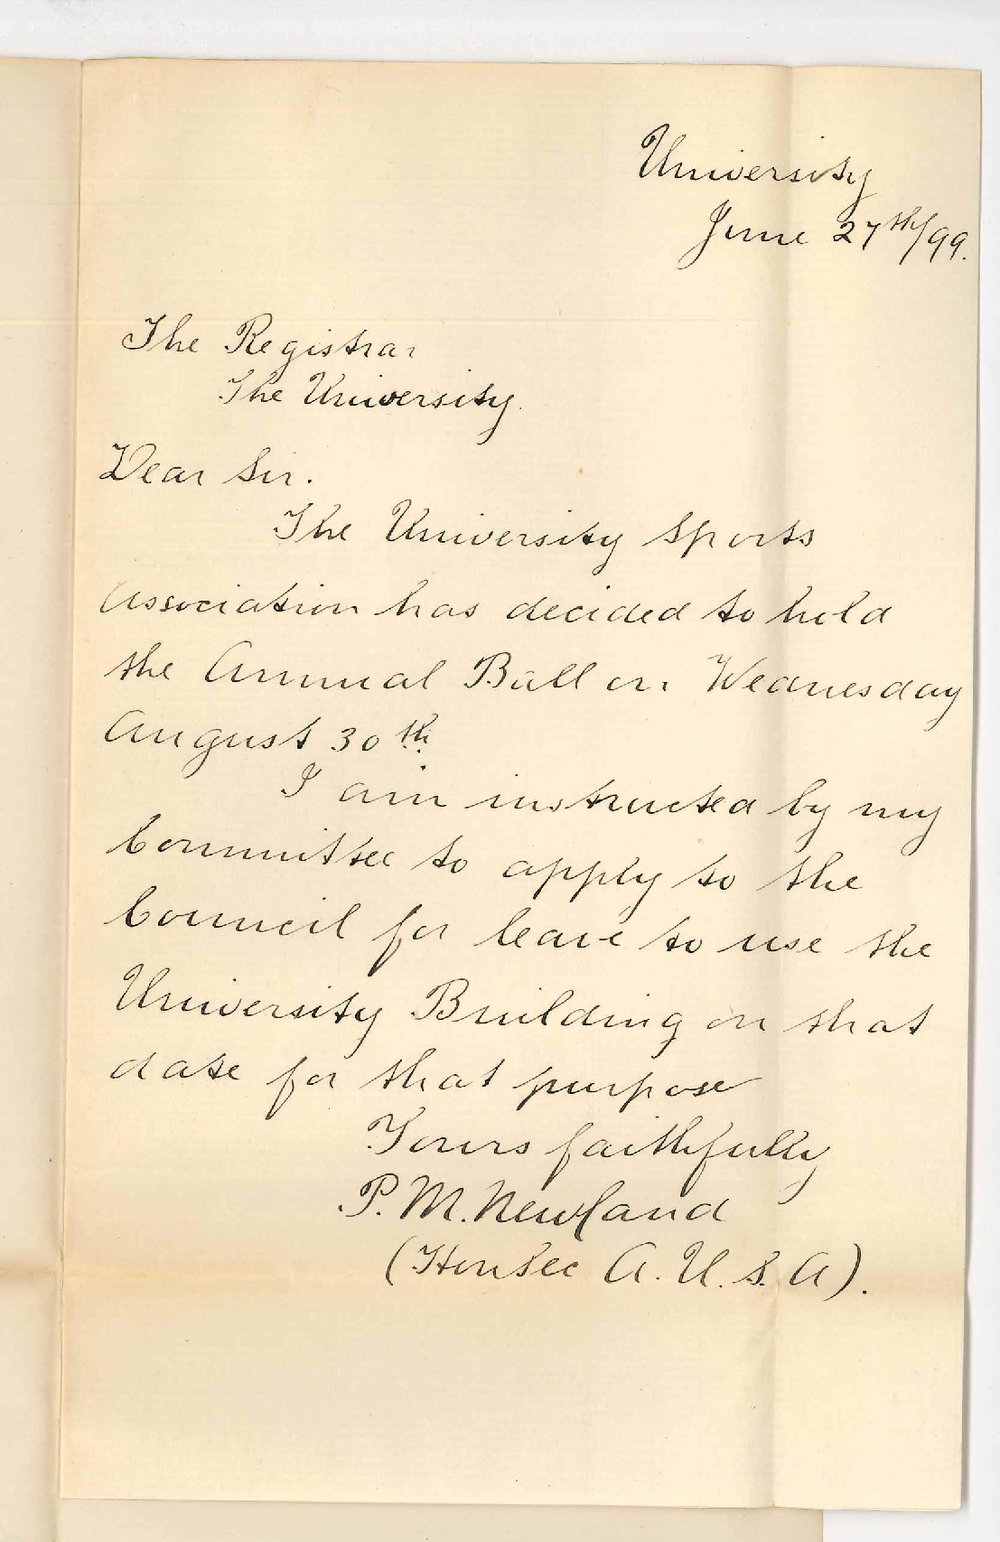 University
June 27th/99.
The Registrar
The University.
Dear Sir.
The University Sports
Association has decided to hold
the Annual Ball on Wednesday
August 30th.
I am instructed by my
Committee to apply to the
Council for leave to use the
University Building on that
date for that purpose
Yours faithfully
P. M. Newland
(Hon Sec A. U. S. A).